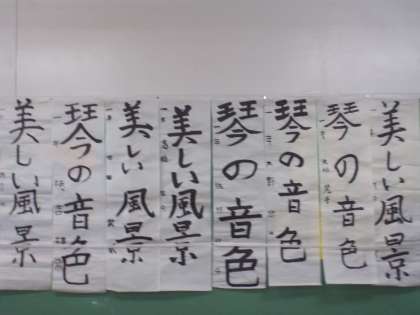 美しい風景
琴の音色
琴の音色
琴の音色
美しい風景
美しい風景
琴の音色
美しい風景